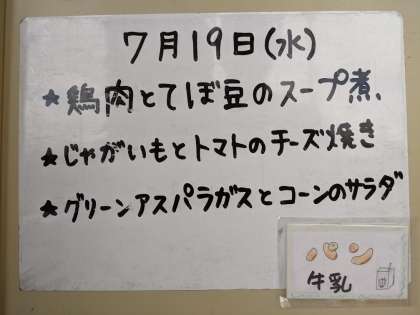 7月19日(水)
★鶏肉とてぼ豆のスープ煮
★じゃがいもとトマトのチーズ焼き
★グリーンアスパラガスとコーンのサラダ
牛乳